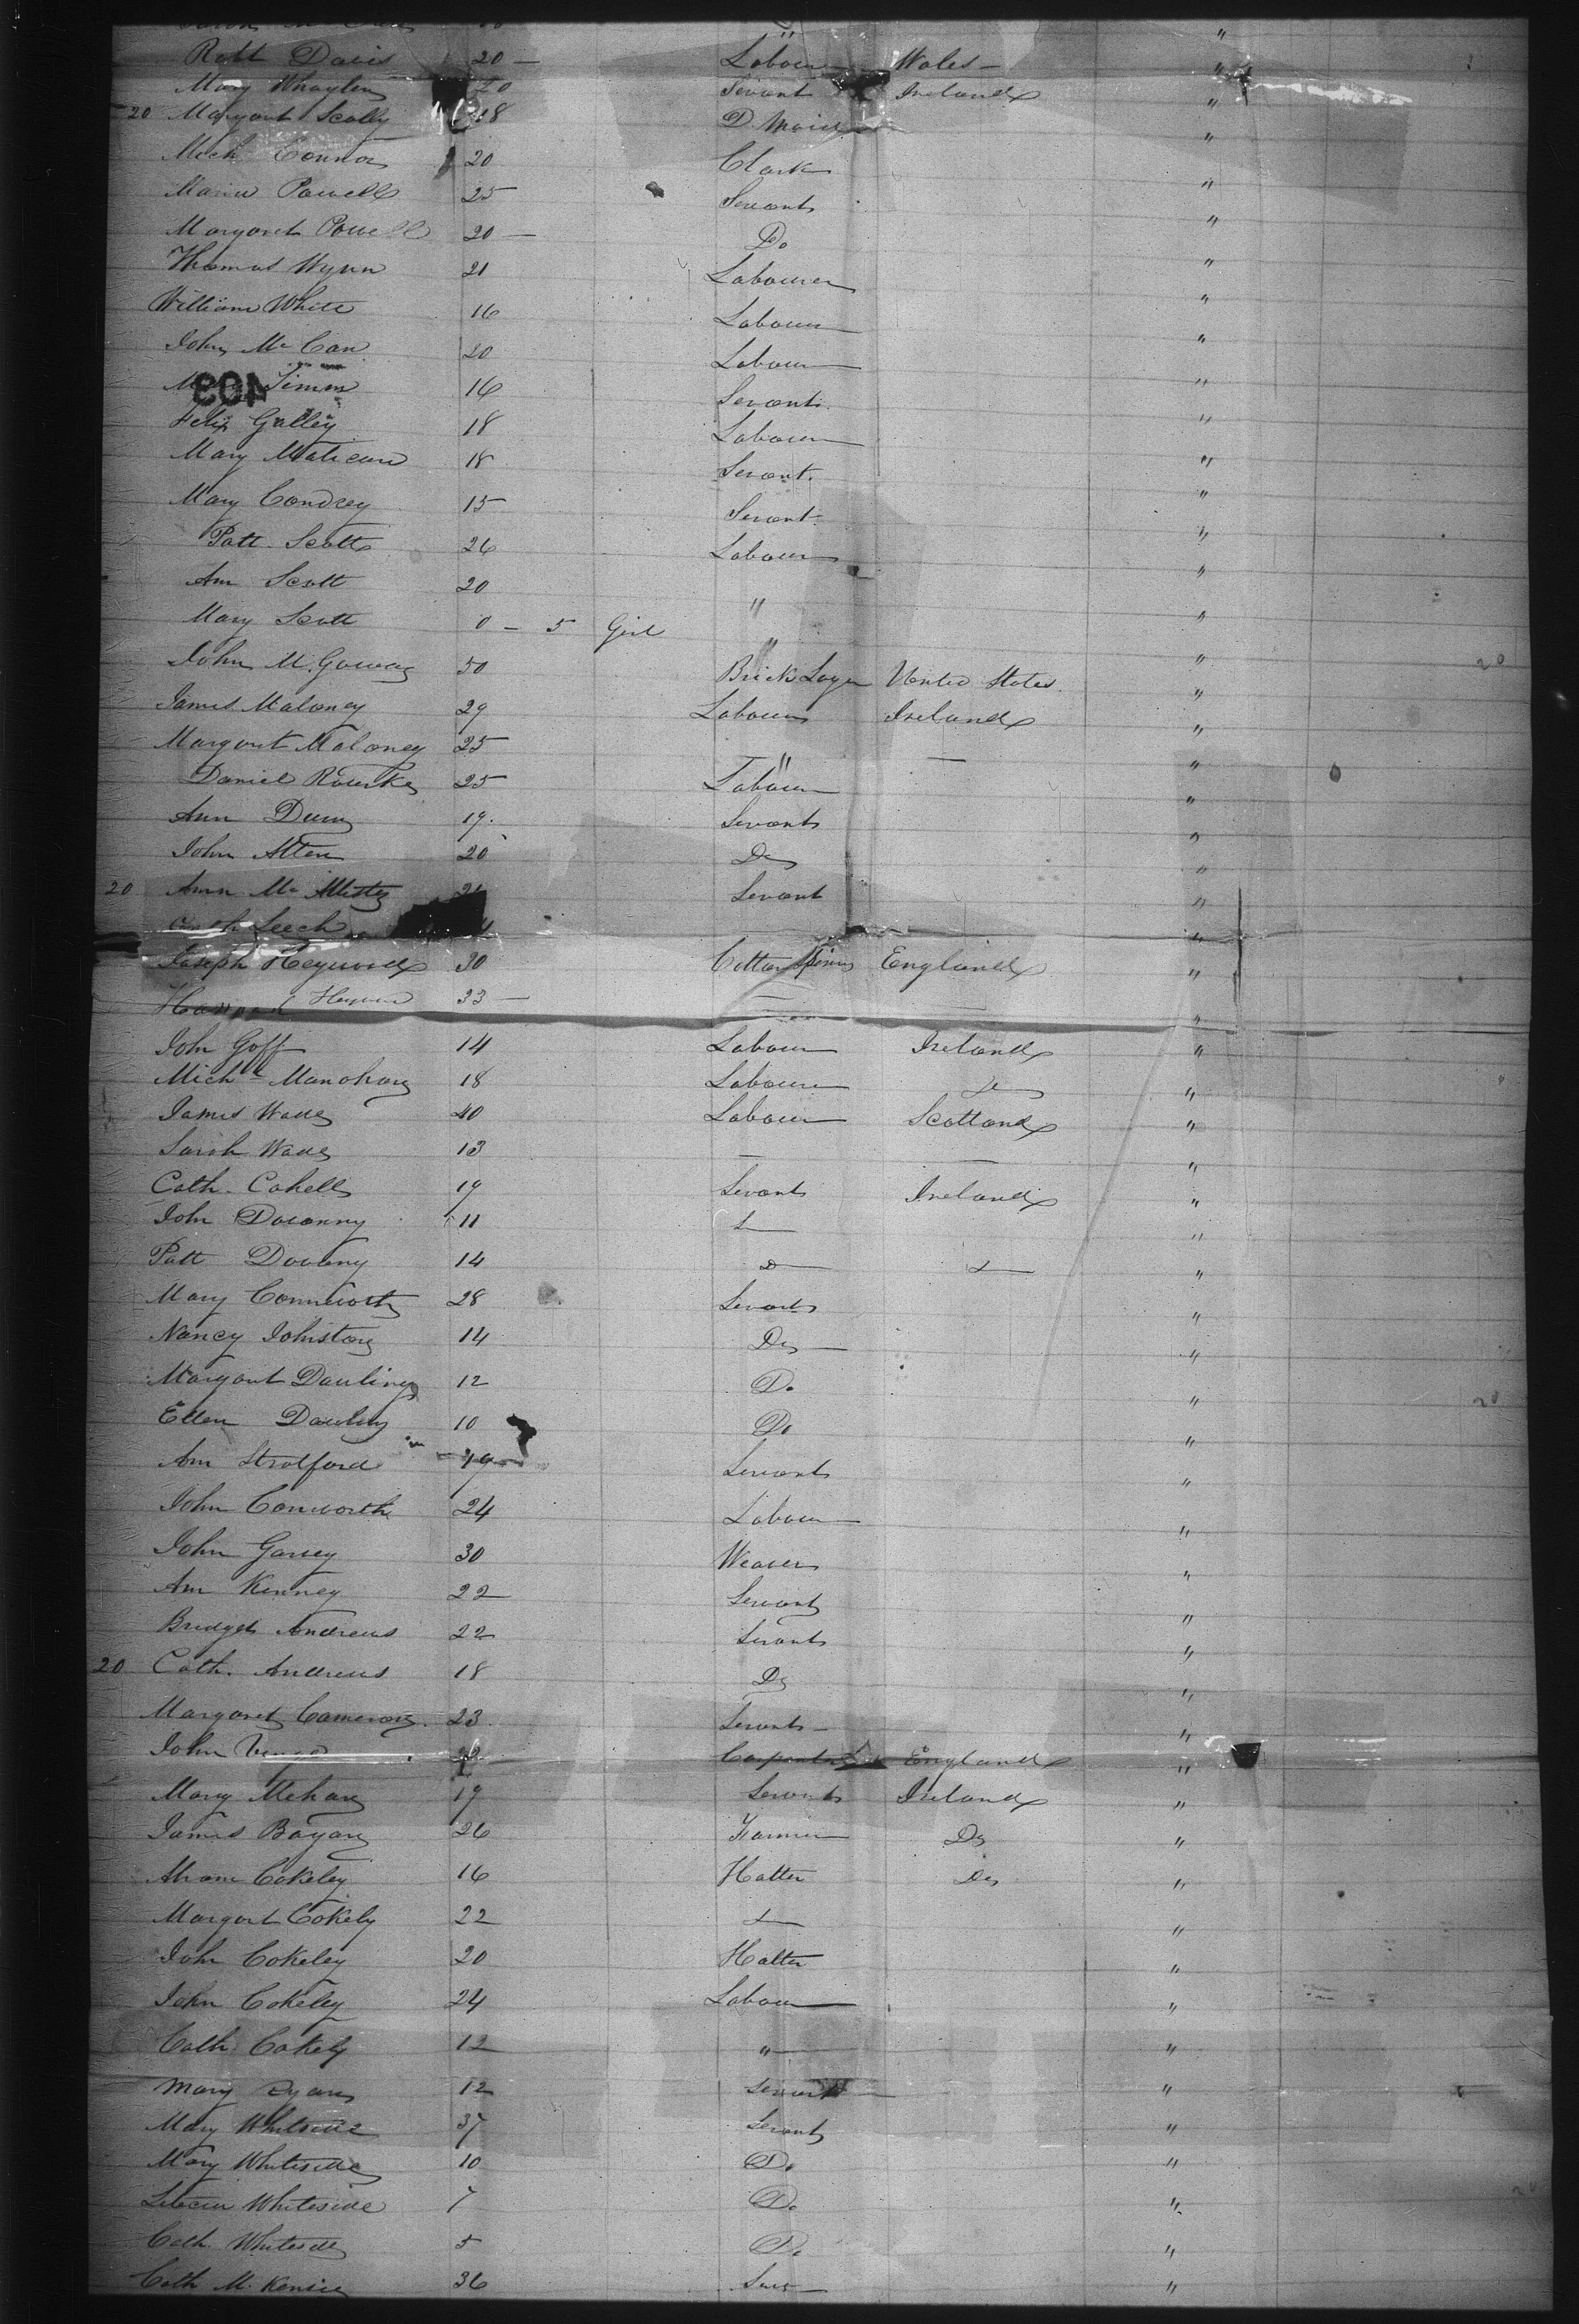 Robt Davis 20 — Labour — Wales — "
Mary Whaylen 20 Servant Ireland "
20 Margaret Scally 18 D. Maid "
Mich Connor 20 Clark "
Maria Powell 25 Servant "
Margaret Powell 20 — Do "
Thomas Wynn 21 Labourer "
William White 16 Labour "
John Mc Can 20 Labour "
403 Timm 16 Servant "
Felix Galley 18 Labour "
Mary 18 Servant. "
Mary Condrey 15 Servant "
Patt. Scott 26 Labour "
Ann Scott 20 " "
Mary Scott 0 — 5 Girl " "
John M. Gowan 50 Brick Layer United States "
James Maloney 29 Labour Ireland "
Margaret Maloney 25 " — "
Daniel Rourke 25 Labour "
Ann Dunn 19. Servant "
John Allen 20 Do "
20 Ann Mc Allister Servant "
Leech "
Joseph Heywood 30 Cotton Spinner England "
Heywood 33 — — "
John Goff 14 Labour Ireland "
Michl Manahan 18 Labour Do "
James Wade 40 Labour Scotland "
Sarah Wade 13 — — "
Cath. Cahell 19 Servant Ireland "
John Dovanny 11 Do "
Patt Dovany 14 Do Do "
Mary Connworth 28 Servant "
Nancy Johnston 14 Do — "
Margaret Dauling 12 Do "
Ellen Dauling 10 Do "
Ann Stratford 19 Servant "
John Conworth 24 Labour "
John Garvey 30 Weaver "
Ann Kenney 22 Servant "
Bridget Andrews 22 Servant "
20 Cath. Andrews 18 Do "
Margaret Cameron 23 Servant — "
John Carpenter England "
Mary Mehan 19 Servant Ireland "
James Bayan 26 Farmer Do "
Cokeley 16 Hatter Do "
Margart Cokely 22 Do "
John Cokeley 20 Hatter "
John Cokeley 24 Labour "
Cath. Cokely 12 " "
Mary Ryan 12 Servant "
Mary Whiteside 37 Servant "
Mary Whiteside 10 Do "
Whiteside 7 Do "
Cath. Whiteside 5 Do "
Cath M. Kenzie 36 Serv "